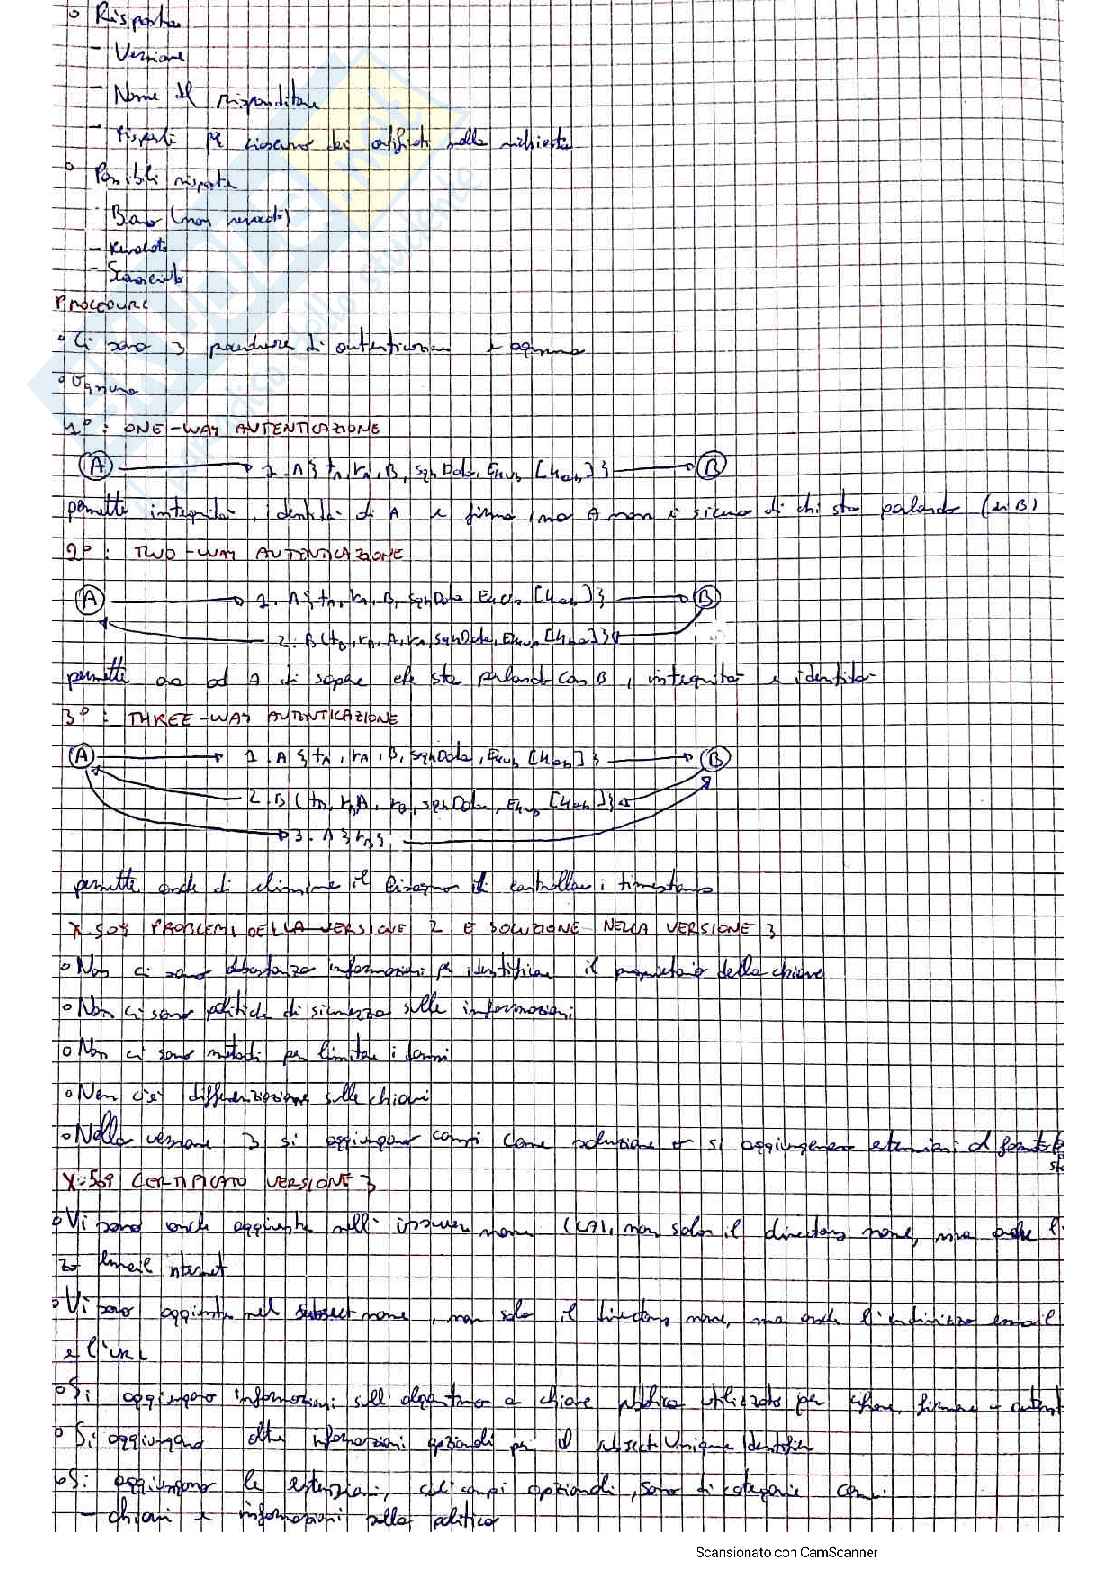 o Risposta
- Versione
- Nome del risponditore
- risposti per ciascuno dei certificati nella richiesta
o Possibili risposte
- Buono (non revocato)
- Revocato
- Sconosciuto
PROCEDURE
o Ci sono 3 procedure di autenticazione e ognuna
o Ognuna
1° : ONE-WAY AUTENTICAZIONE
A 1. A { tA, rA, B, sgnData, EKUb [Kab] } B
permette integrità, identità di A e firma, ma A non è sicuro di chi sta parlando (es B)
2° : TWO-WAY AUTENTICAZIONE
A 1. A { tA, rA, B, sgnData, EKUb [Kab] } B
2. B { tB, rB, A, rA, sgnData, EKUa [Kba] }
permette ora ad A di sapere che sta parlando con B, integrità e identità
3° : THREE-WAY AUTENTICAZIONE
A 1. A { tA, rA, B, sgnData, EKUb [Kab] } B
2. B { tB, rB, A, sgnData, [Kab] }
3. A { rB }
permette anche di eliminare il bisogno di controllare i timestamp
X.509 PROBLEMI DELLA VERSIONE 2 E SOLUZIONE NELLA VERSIONE 3
o Non ci sono abbastanza informazioni per identificare il proprietario della chiave
o Non ci sono politiche di sicurezza sulle informazioni
o Non ci sono metodi per limitare i danni
o Non c'è differenziazione sulle chiavi
o Nella versione 3 si aggiungono campi come soluzione o si aggiungeranno estensioni al formato
X.509 CERTIFICATO VERSIONE 3
o Vi sono anche aggiunte nell' issuer name (CA), non solo il directory name, ma anche l'
email internet
o Vi sono aggiunte nel subject name, non solo il directory name, ma anche l'indirizzo email
e l'URL
o Si aggiungono informazioni sull algoritmo a chiave pubblica utilizzato per cifrare, firmare
o Si aggiungono altre informazioni opzionali per il subject Unique Identifier
o Si aggiungono le estensioni, campi opzionali, sono di categorie come:
- chiavi e informazioni sulla politica
Scansionato con CamScanner